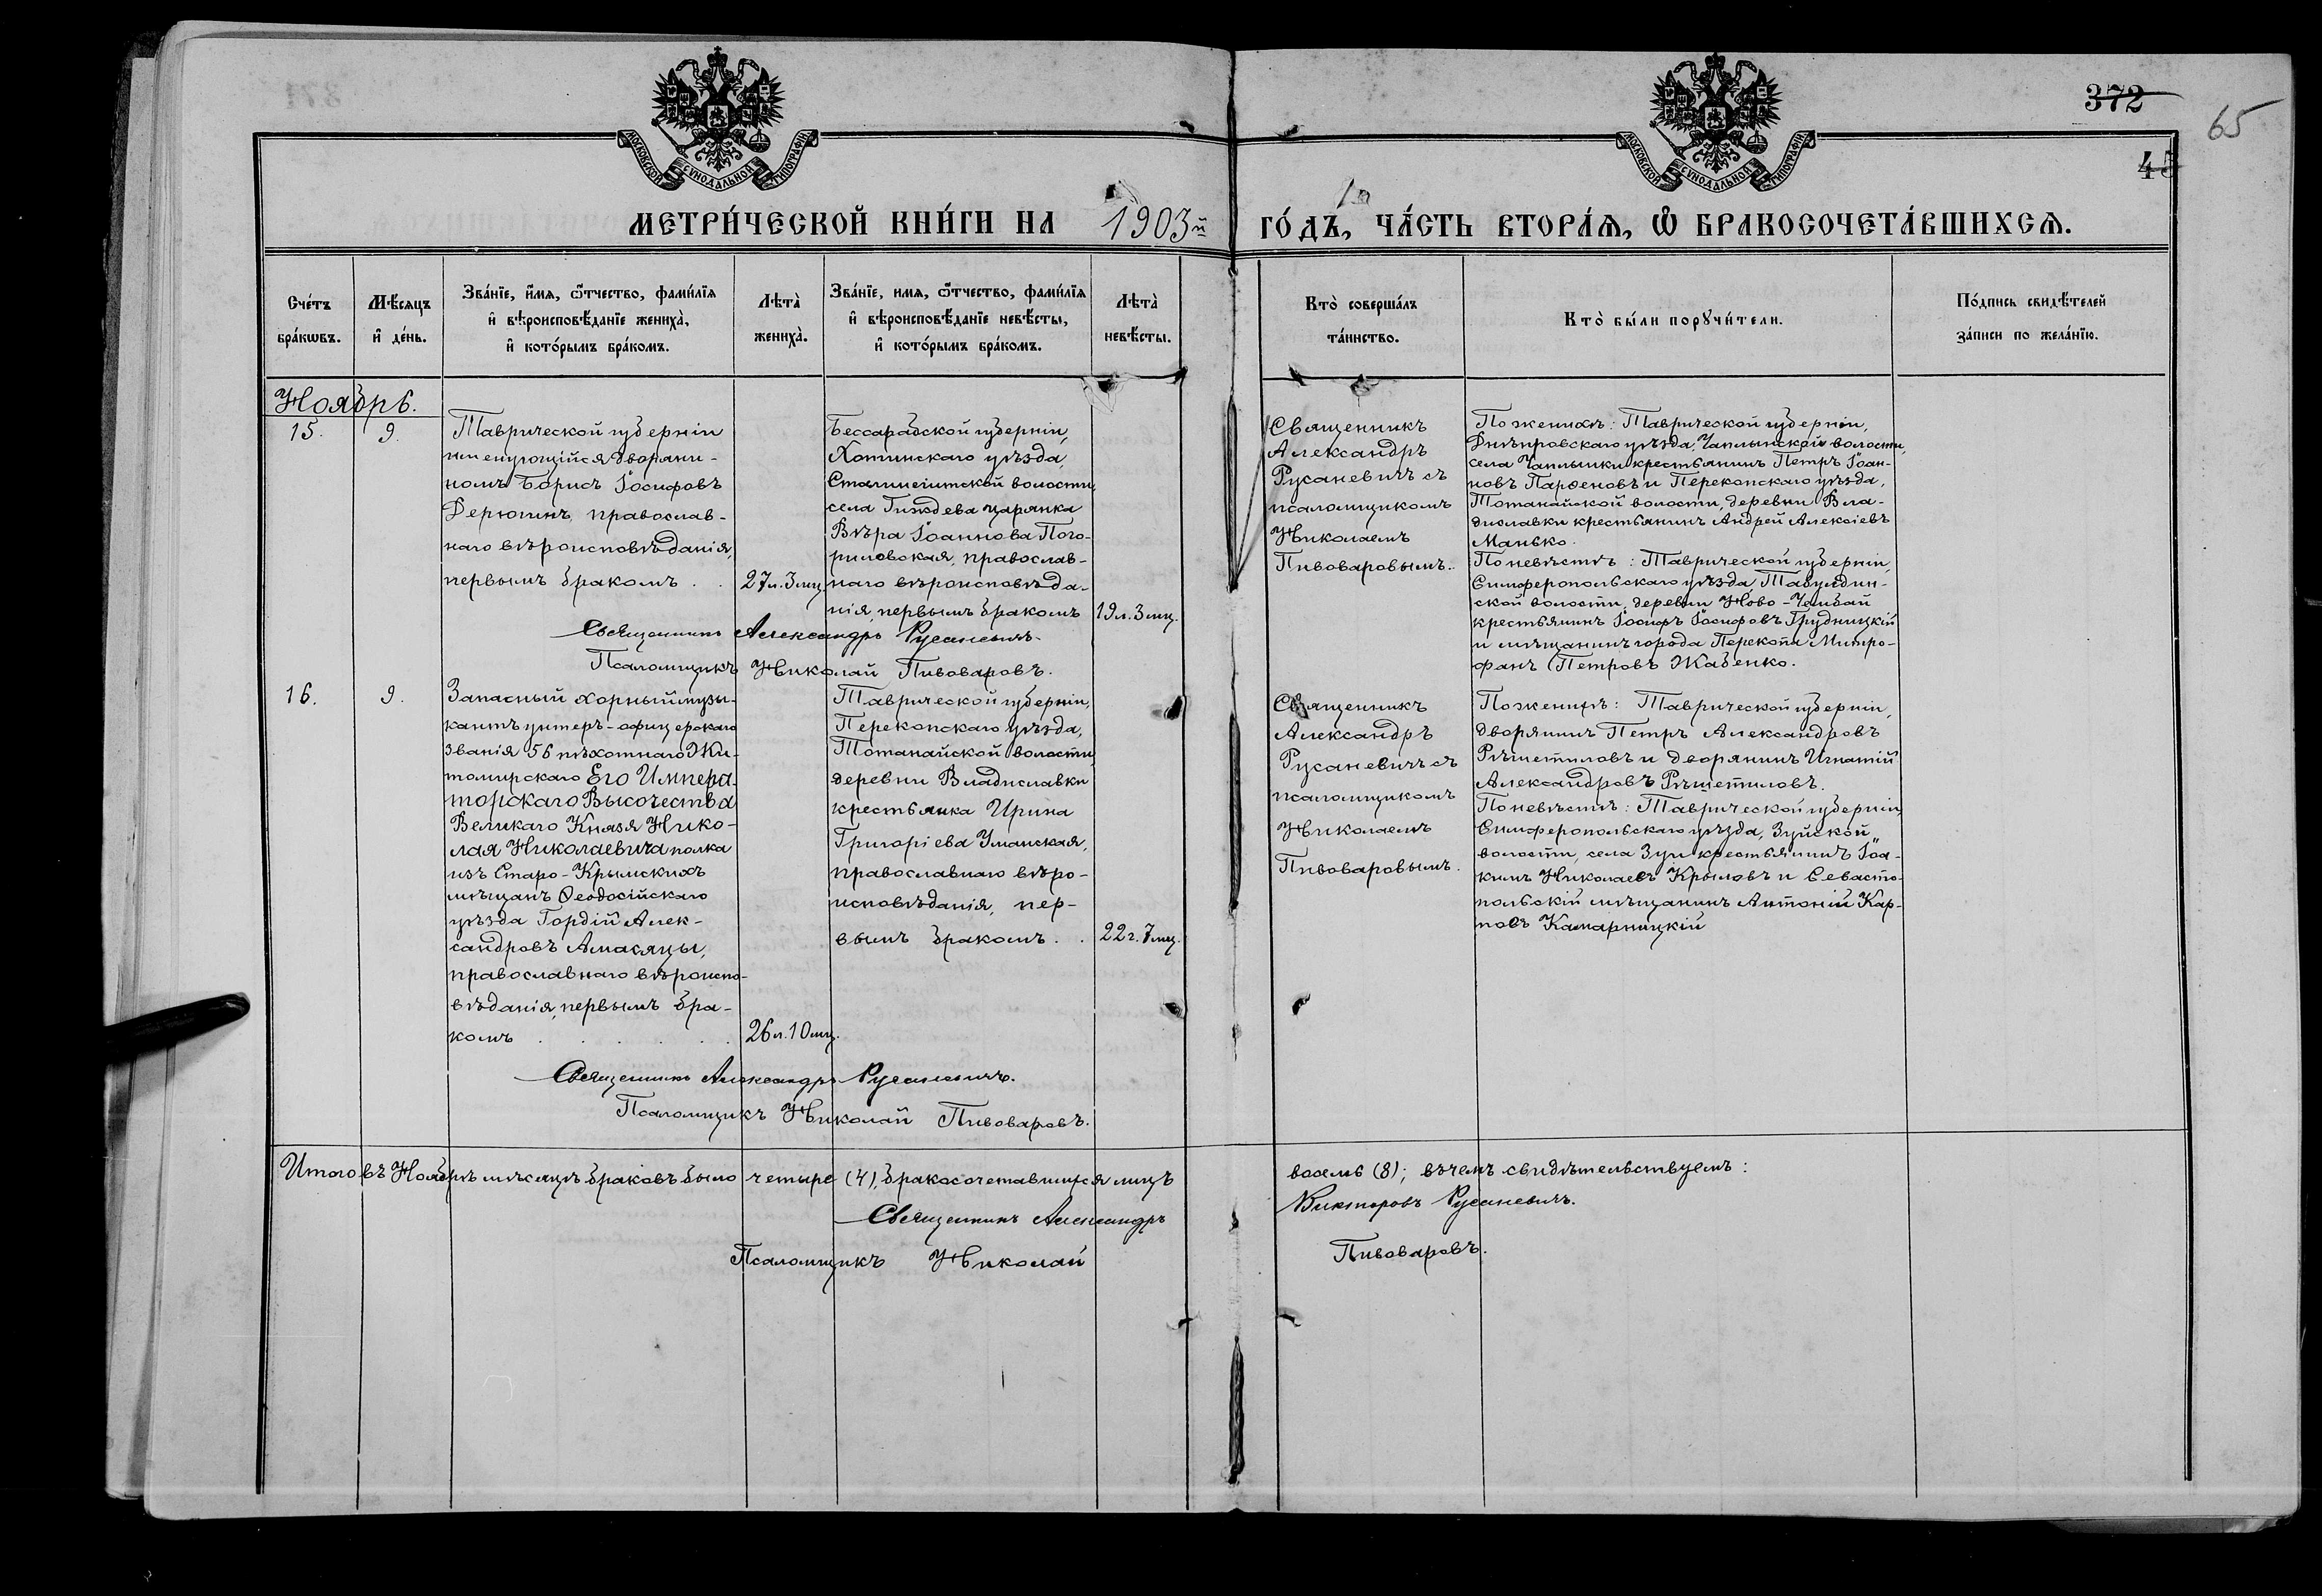 372
65
45
МОСКОВСКОЙ СѴНОДАЛЬНОЙ ТИПОГРАФІИ
МОСКОВСКОЙ СѴНОДАЛЬНОЙ ТИПОГРАФІИ
МЕТРИ́ЧЕСКОЙ КНИ́ГИ НА 1903й ГО́ДЪ, ЧА́СТЬ ВТОРА́Ѧ, Ѽ БРАКОСОЧЕТА́ВШИХСѦ.
Сче́тъ
бра́кѡвъ.
Мѣ́сяцъ
и҆ де́нь.
Зва́нїе, и҆́мѧ, ѻ҆́тчество, фами́лїѧ
и҆ вѣроисповѣ́данїе жениха̀,
и҆ кото́рымъ бра́комъ.
Лѣта̀
жениха̀.
Зва́нїе, имѧ, ѻ҆́тчество, фами́лїѧ
и҆ вѣроисповѣ́данїе невѣ́сты,
и҆ кото́рымъ бра́комъ.
Лѣта̀
невѣ́сты.
Кто̀ соверша́лъ
та́инство.
Кто̀ бы́ли порꙋчи́тели.
По́дпись свидѣ́телей
за́писи по жела́нїю.
Ноябрь.
15.
9.
Таврической губерніи
именующійся дворяни-
номъ Борисъ Іосифовъ
Дерюгинъ, православ-
наго вѣроисповѣданія,
первымъ бракомъ . .
27л. 3мц.
Бессарабской губерніи,
Хотинскаго уѣзда,
волости,
села Гиждева царянка
Вѣра Іоаннова Пого-
риловская, православ-
наго вѣроисповѣда-
нія, первымъ бракомъ
19л. 3мц.
Священникъ
Александръ
Русаневичъ съ
псаломщикомъ
Николаемъ
Пивоваровымъ.
По женихѣ: Таврической губерніи,
Днѣпровскаго уѣзда, Чаплынской волости,
села Чаплынки крестьянинъ Петръ Іоан-
новъ Парѳеновъ и Перекопскаго уѣзда,
Тотанайской волости, деревни Вла-
диславки крестьянинъ Андрей Алексіевъ
Манько.
По невѣстѣ: Таврической губерніи,
Симферопольскаго уѣзда Табулдин-
ской волости, деревни Ново-Чембай
крестьянинъ Іосифъ Іосифовъ Грудницкій
и мѣщанинъ города Перекопа Митро-
фанъ Петровъ Жабенко.
Священникъ Александръ Русаневичъ.
Псаломщикъ Николай Пивоваровъ.
16.
9.
Запасный хорный музы-
кантъ унтеръ-офицерскаго
званія 56 пѣхотнаго Жи-
томирскаго Его Импера-
торскаго Высочества
Великаго Князя Нико-
лая Николаевича полка
изъ Старо-Крымскихъ
мѣщанъ Ѳеодосійскаго
уѣзда Гордій Алек-
сандровъ Амасяцы,
православнаго вѣроиспо-
вѣданія, первымъ бра-
комъ . . . . .
26л. 10мц.
Таврической губерніи,
Перекопскаго уѣзда,
Тотанайской волости,
деревни Владиславки
крестьянка Ирина
Григоріева Уманская,
православнаго вѣро-
исповѣданія, пер-
вымъ бракомъ . .
22г. 7мц.
Священникъ
Александръ
Русаневичъ съ
псаломщикомъ
Николаемъ
Пивоваровымъ.
По женихѣ: Таврической губерніи,
дворянинъ Петръ Александровъ
Рѣшетиловъ и дворянинъ Игнатій
Александровъ Рѣшетиловъ.
По невѣстѣ: Таврической губерніи,
Симферопольскаго уѣзда, Зуйской
волости, села Зуи крестьянинъ Іоа-
кимъ Николаевъ Крыловъ и Севасто-
польскій мѣщанинъ Антоній Кар-
повъ Камарницкій
Священникъ Александръ Русаневичъ.
Псаломщикъ Николай Пивоваровъ.
Итого въ Ноябрѣ мѣсяцѣ браковъ было четыре (4), бракосочетавшихся лицъ восемь (8); въ чемъ свидѣтельствуемъ:
Священникъ Александръ Викторовъ Русаневичъ.
Псаломщикъ Николай Пивоваровъ.